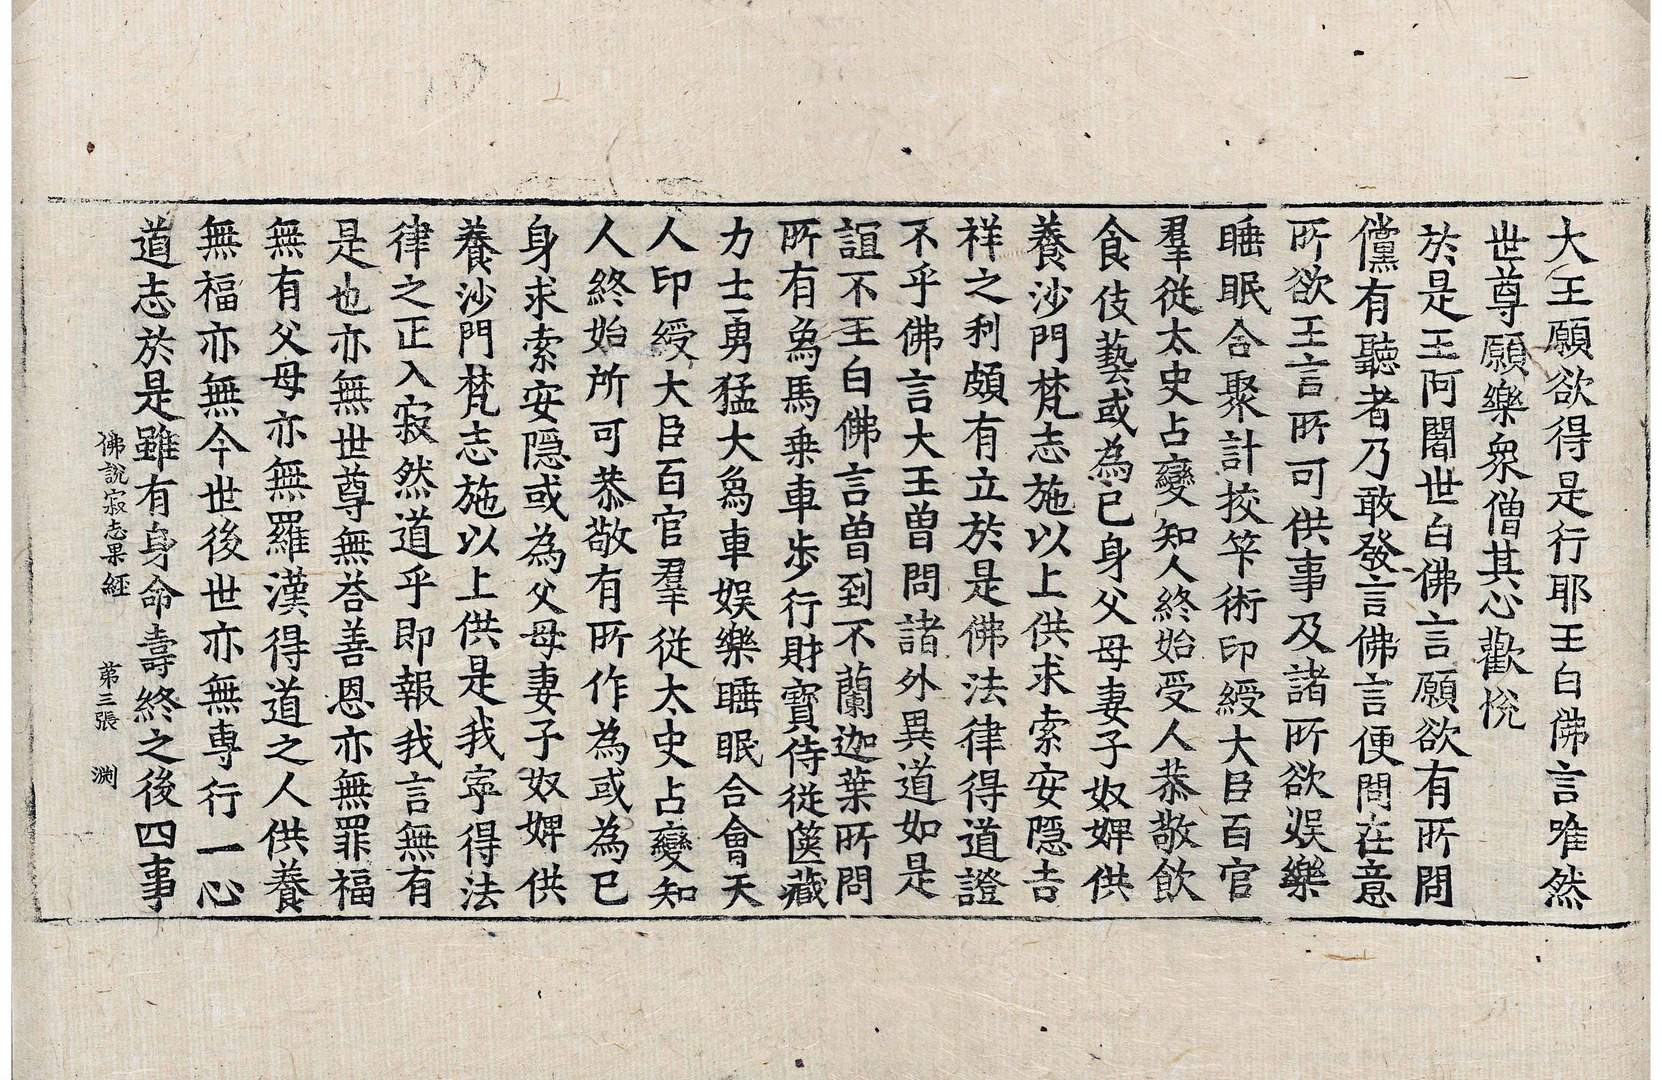 大王願欲得是行耶王白佛言唯然
世尊願樂衆僧其心歡悅
於是王阿闍世白佛言願欲有所問
儻有聽者乃敢發言佛言便問在意
所欲王言所可供事及諸所欲娛樂
睡眠合聚計挍竿術印綬大臣百官
羣從太史占變知人終始受人恭敬飲
食伎藝或為已身父母妻子奴婢供
養沙門梵志施以上供求索安隱吉
祥之利頗有立於是佛法律得道證
不乎佛言大王曽問諸外異道如是
誼不王白佛言曽到不蘭迦葉所問
所有爲馬乗車歩行財寶侍從篋藏
力士勇猛大爲車娛樂睡眠合會天
人印綬大臣百官羣從太史占變知
人終始所可恭敬有所作為或為已
身求索安隱或為父母妻子奴婢供
養沙門梵志施以上供是我寧得法
律之正入寂然道乎即報我言無有
是也亦無世尊無荅善恩亦無罪福
無有父母亦無羅漢得道之人供養
無福亦無今世後世亦無專行一心
道志於是雖有身命壽終之後四事
佛說寂志果經 第三張 渕